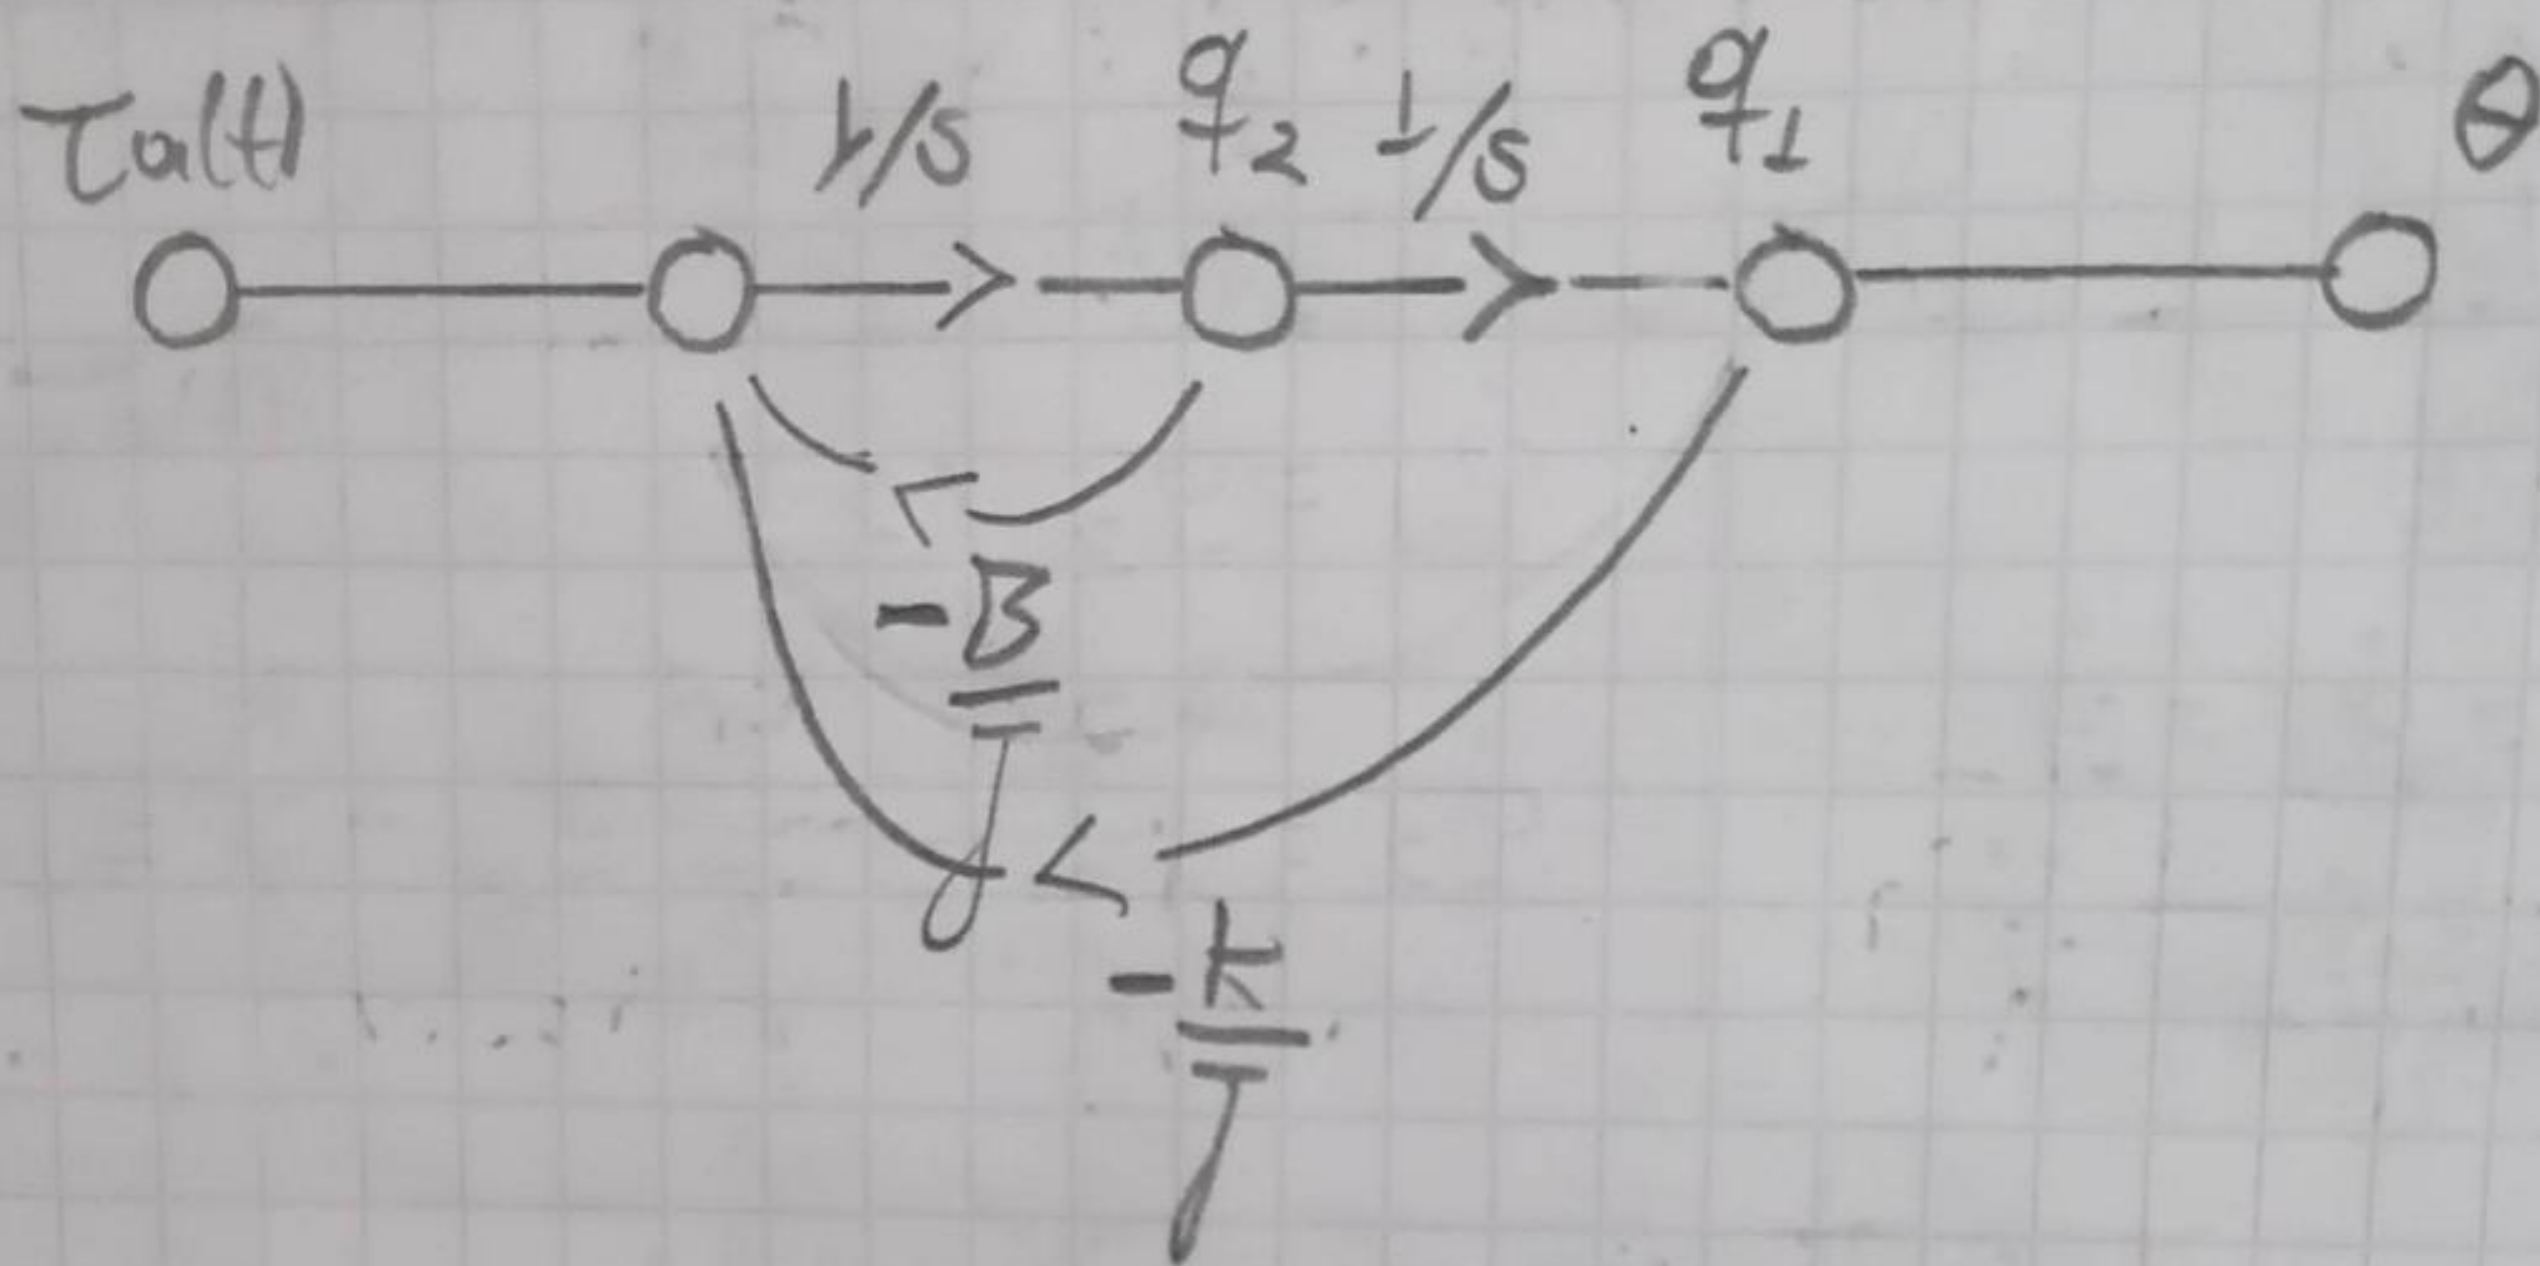 τa(t) 1/s q2 1/s q1 θ
-B/J
-k/J